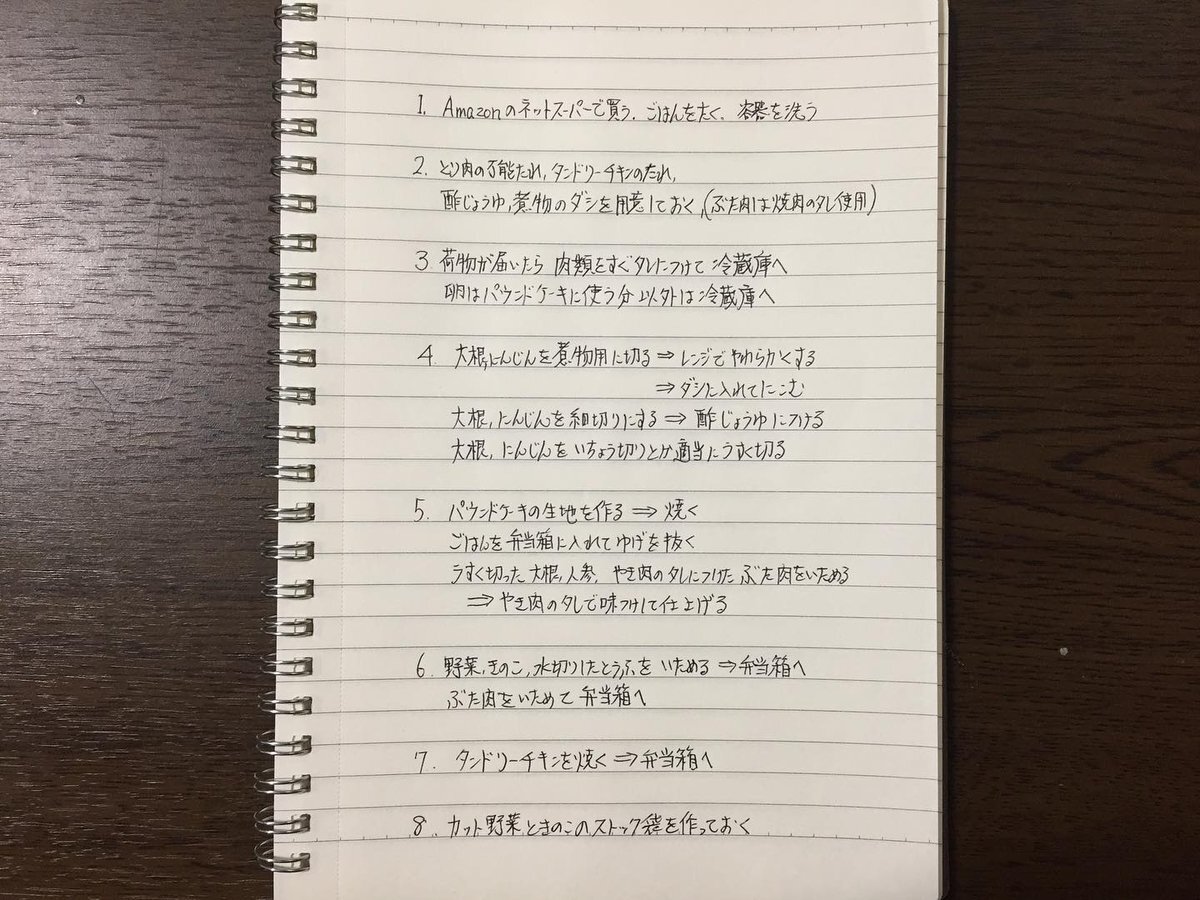 1. Amazonのネットスーパーで買う。ごはんをたく、容器を洗う
2. とり肉の万能たれ、タンドリーチキンのたれ、
酢じょうゆ、煮物のダシを用意しておく、(ぶた肉は焼肉のタレ使用)
3 荷物が届いたら 肉類をすぐタレにつけて 冷蔵庫へ
卵はパウンドケーキに使う分 以外は 冷蔵庫へ
4. 大根、にんじんを煮物用に切る ⇒ レンジで やわらかくする
⇒ ダシに入れてにこむ
大根、にんじんを細切りにする ⇒ 酢じょうゆにつける
大根、にんじんをいちょう切りとか適当にうすく切る
5. パウンドケーキの生地を作る ⇒ 焼く
ごはんを弁当箱に入れて ゆげを抜く
うすく切った大根、人参、やき肉のタレにつけた ぶた肉をいためる
⇒ やき肉のタレで味つけして仕上げる
6. 野菜、きのこ、水切りしたとうふを いためる ⇒ 弁当箱へ
ぶた肉をいためて 弁当箱へ
7. タンドリーチキンを焼く ⇒ 弁当箱へ
8. カット野菜ときのこのストック袋を作っておく